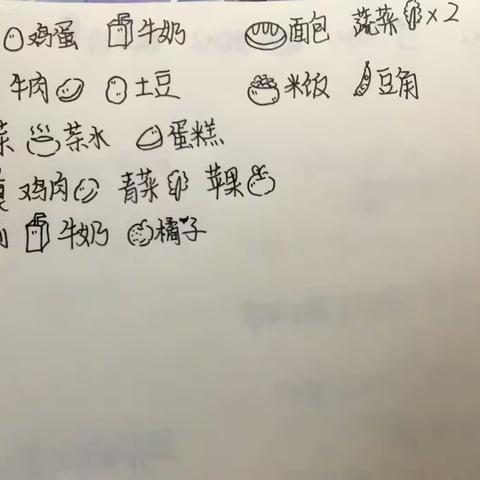 鸡蛋 牛奶 面包 蔬菜×2
牛肉 土豆 米饭 豆角
菜 茶水 蛋糕
鸡肉 青菜 苹果
牛奶 橘子